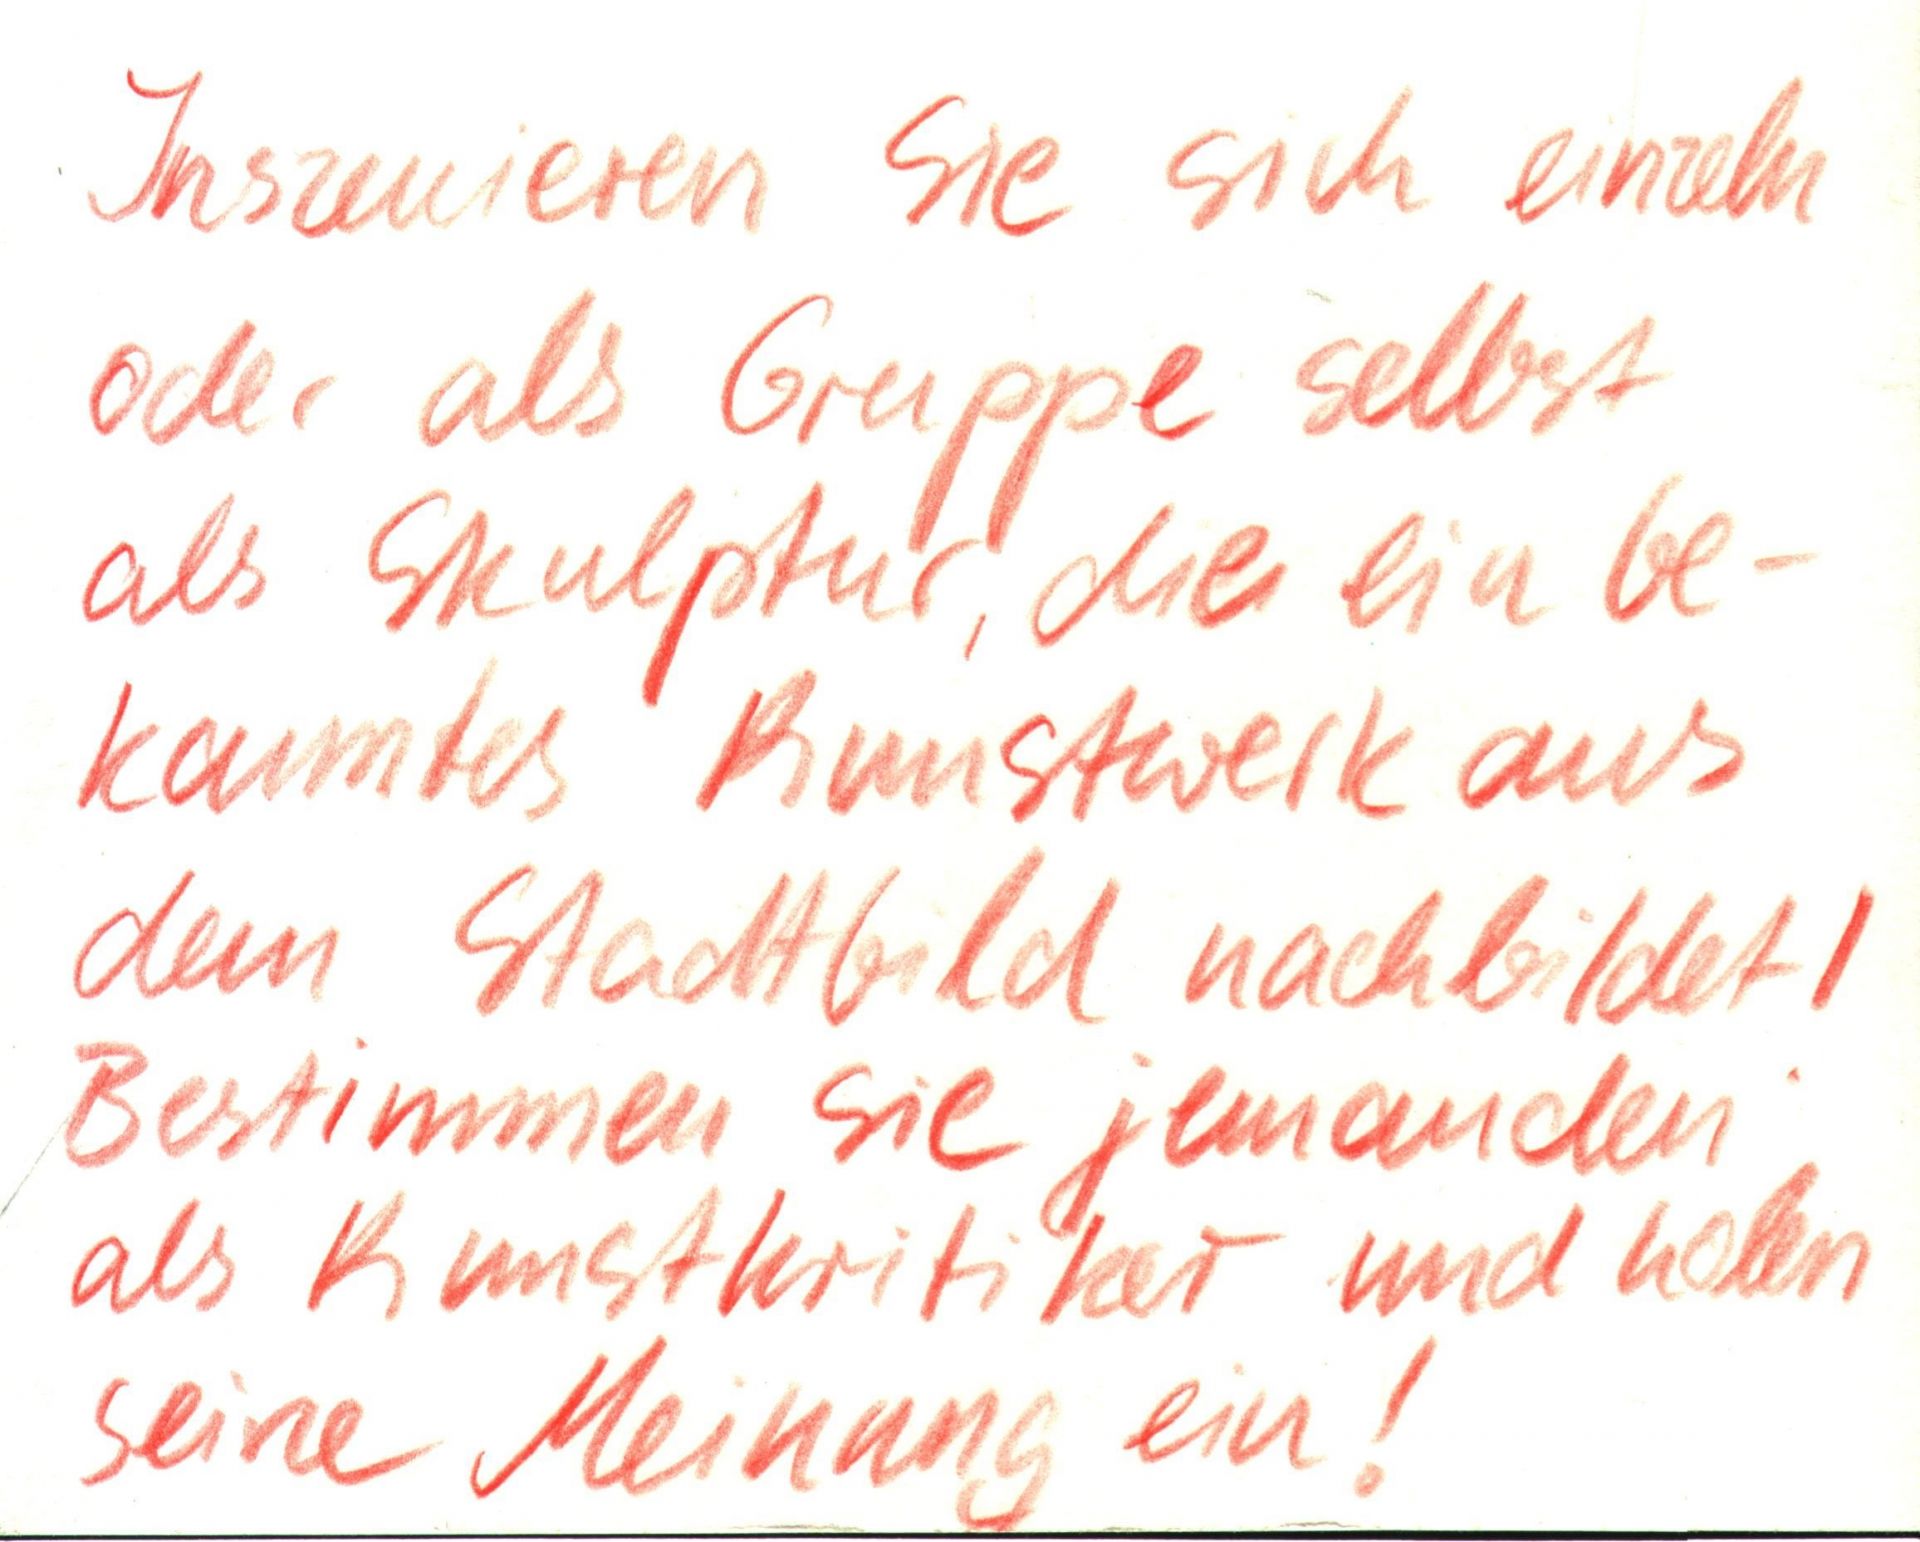 Inszenieren Sie sich einzeln
oder als Gruppe selbst
als Skulptur, die ein be-
kanntes Kunstwerk aus
dem Stadtbild nachbildet!
Bestimmen sie jemanden
als Kunstkritiker und holen
seine Meinung ein!